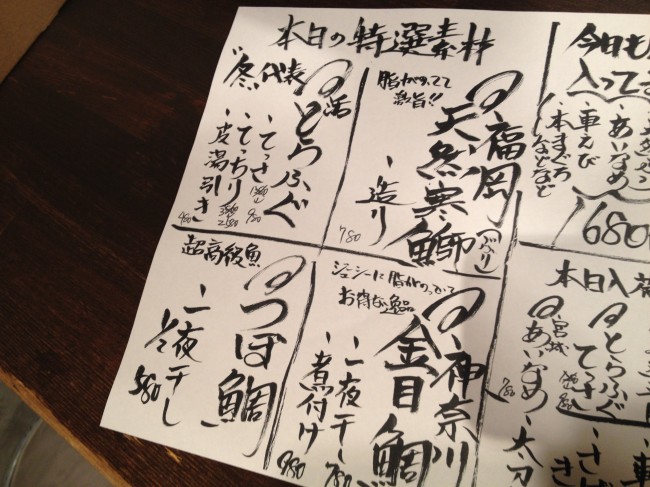 本日の特選素材
"冬代表
活
とらふぐ
・てっさ
980
・てっちり
・皮湯引き
480
脂がのってて
激旨!!
福岡
天然寒鰤
(ぶり)
・造り
780
超高級魚
つぼ鯛
・一夜干し
580
ジューシーに脂がのってて
お肉な逸品
神奈川
金目鯛
・一夜干し
780
・煮付け
980
今日も
入って
・あいなめ
・車えび
・本まぐろ
などなど
680
本日入荷
とらふぐ
てっさ
宮城
あいなめ
780
・太刀